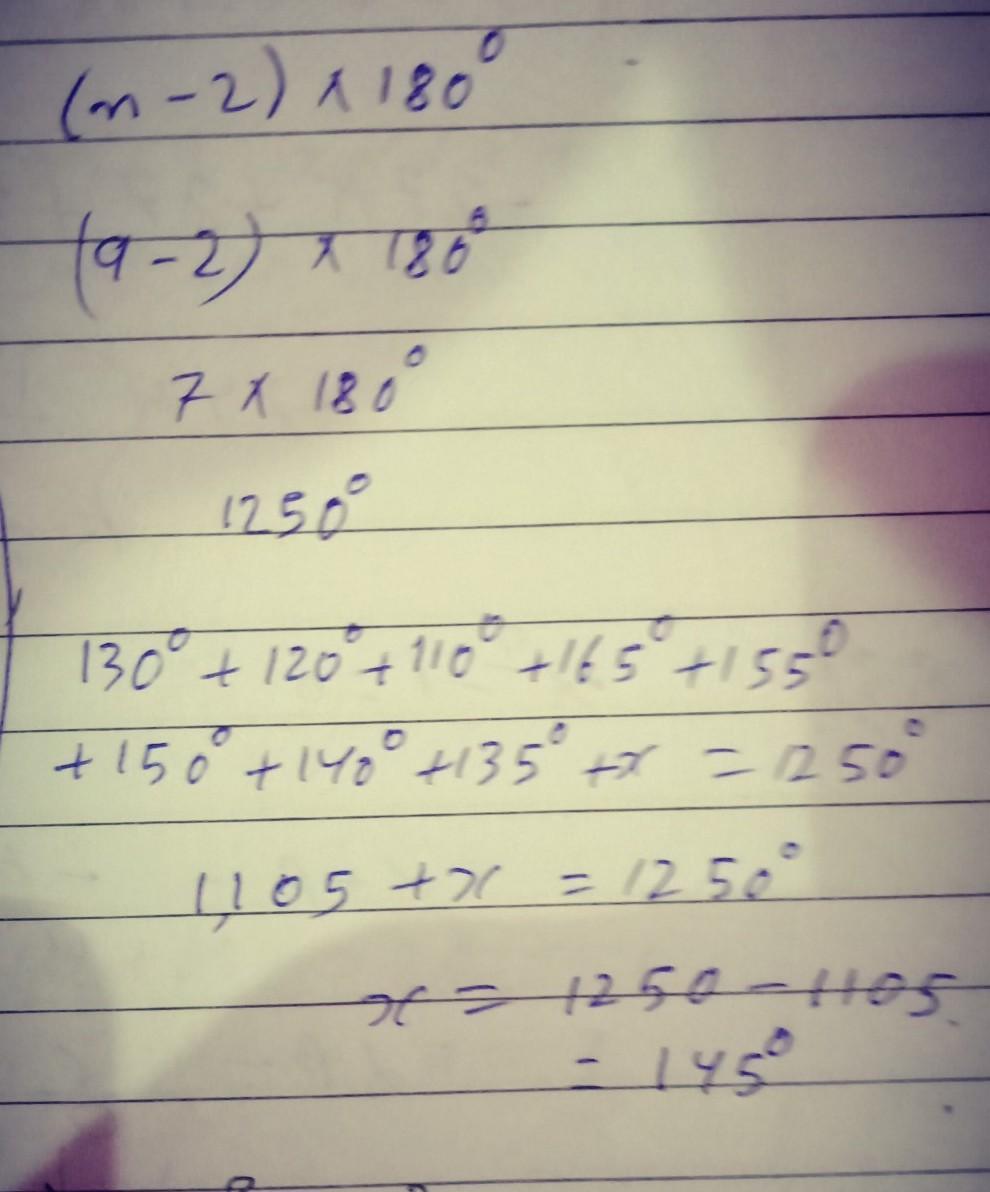 (n-2) x 180°
(9-2) x 180°
7 x 180°
1250°
130° + 120° + 110° + 165° + 155°
+ 150° + 140° + 135° + x = 1250°
1,105 + x = 1250°
x = 1250 - 1105
= 145°